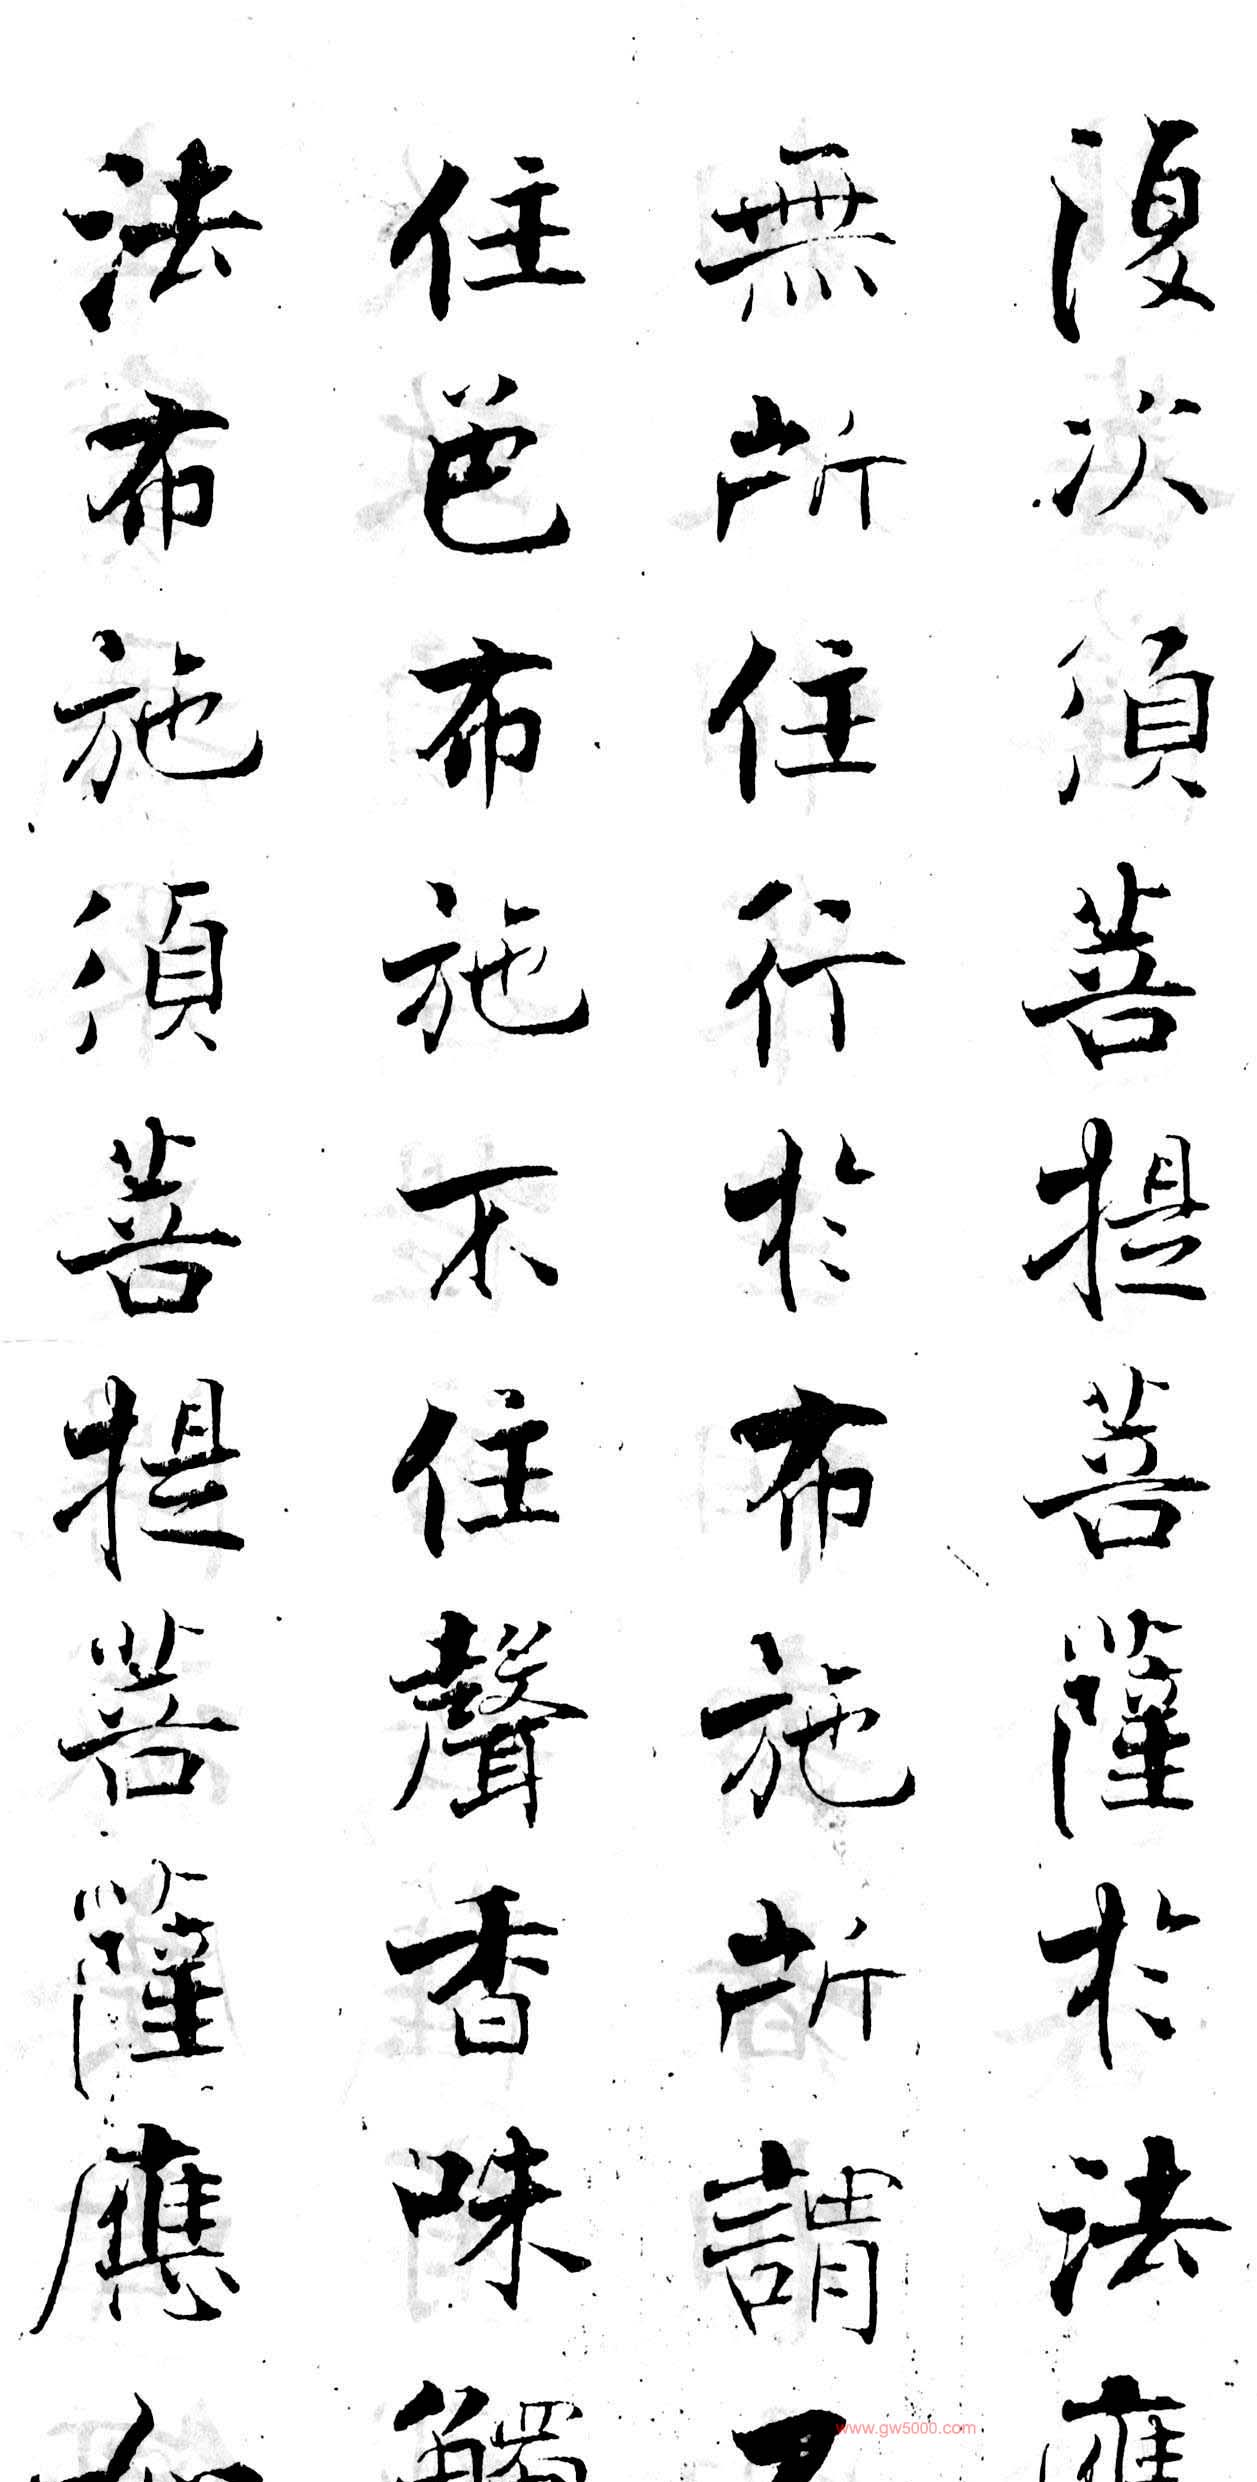 復次須菩提菩薩於法應
無所住行於布施所謂不
住色布施不住聲香味觸
法布施須菩提菩薩應
www.gw5000.com